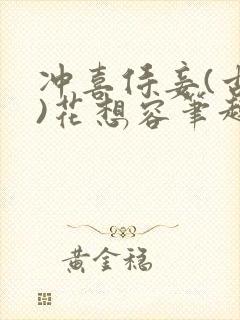 冲喜侍妾(古
)花想容笔趣
黄金稳